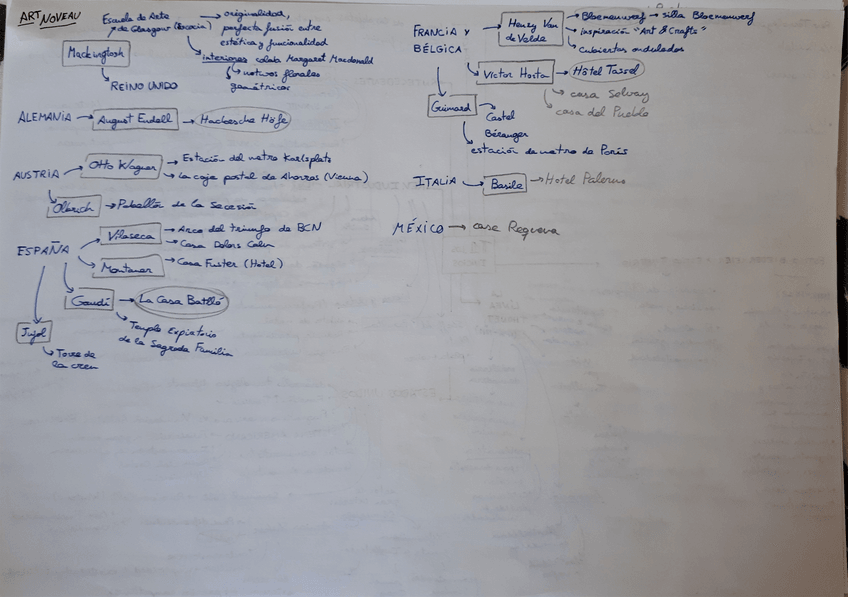 ART NOVEAU
Escuela de Arte
de Glasgow (Escocia)
originalidad,
perfecta fusión entre
estética y funcionalidad
Mackingtosh
interiores colabo Margaret Macdonald
motivos florales
geométricos
REINO UNIDO
ALEMANIA
August Endell
Hackesche Höfe
AUSTRIA
Otto Wagner
Estación del metro Karlsplatz
La caja postal de Ahorros (Vienna)
Olbrich
Pabellón de la secesión
ESPAÑA
Vilaseca
Arco del triunfo de BCN
Casa Dolors Calm
Montaner
Casa Fuster (Hotel)
Gaudí
La Casa Batlló
Templo Expiatorio
de la Sagrada Familia
Jujol
Torre de
la creu
FRANCIA Y
BÉLGICA
Henry Van
de Velde
Bloemenwerf → silla Bloemenwerf
inspiración "Art & Crafts"
cubiertas onduladas
Victor Horta
Hôtel Tassel
casa Solvay
casa del Pueblo
Guimard
Castel
Béranger
estación de metro de París
ITALIA
Basile
Hotel Palermo
MÉXICO → casa Requena